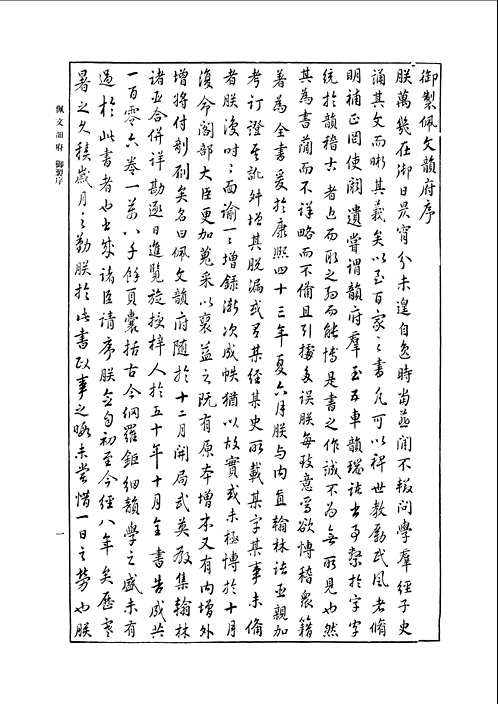 御製佩文韻府序
朕萬幾在御日昃宵分未遑自逸時當燕閒不輟問學羣經子史
誦其文而晰其義矣以至百家之書凡可以裨世教勵民風者脩
明補正罔使闕遺嘗謂韻府羣玉五車韻瑞諸書事繫於字字
統於韻稽古者近而取之約而能博是書之作誠不為無所見也然
其為書簡而不詳略而不備且引據多誤朕每致意焉欲博稽眾籍
著為全書爰於康熙四十三年夏六月朕與內直翰林諸臣親加
考訂證其訛舛增其脫漏或有某經某史所載某字某事未備
者朕復時時面諭一一增錄漸次成帙猶以故實或未極博於十月
復命閣部大臣更加蒐采以裒益之既有原本增本又有內增外
增將付剞劂矣名曰佩文韻府隨於十二月開局武英殿集翰林
諸臣合併詳勘逐日進覽旋授梓人於五十年十月全書告成共
一百零六卷一萬八千餘頁囊括古今網羅鉅細韻學之盛未有
過於此書者也書成諸臣請序朕念自初至今經八年矣歷寒
暑之久積歲月之勤朕於此書政事之暇未嘗惜一日之勞也朕
佩文韻府 御製序
一